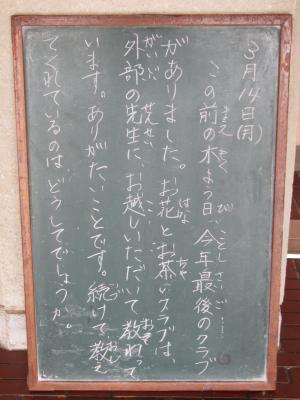 3月14日(月)
この前の木よう日、今年最後のクラブ
がありました。お花とお茶クラブは、
外部の先生に、お越しいただいて教わって
います。ありがたいことです。続けて教え
てくれているのは、どうしてでしょうか。